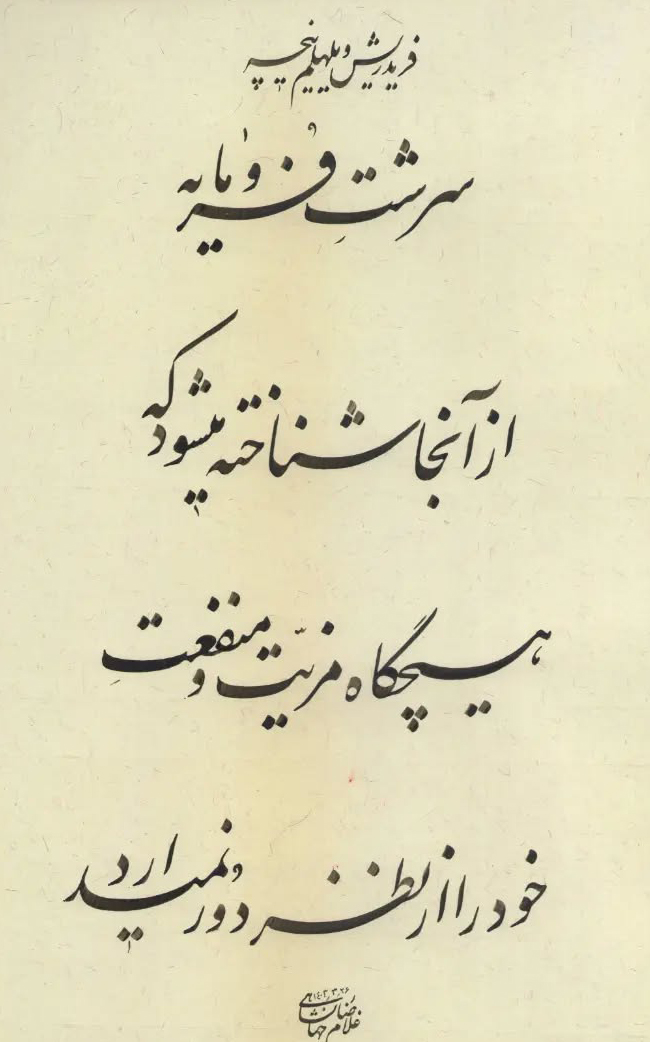 فریدریش ویلهیلم نیچه
سرشتِ فرومایه
از آنجا شناخته میشود که
هیچگاه مزیّت و منفعتِ
خود را از نظر دور نمیدارد
۱۴۰۲٫۳٫۲۶
غلامرضا جهانشاهی